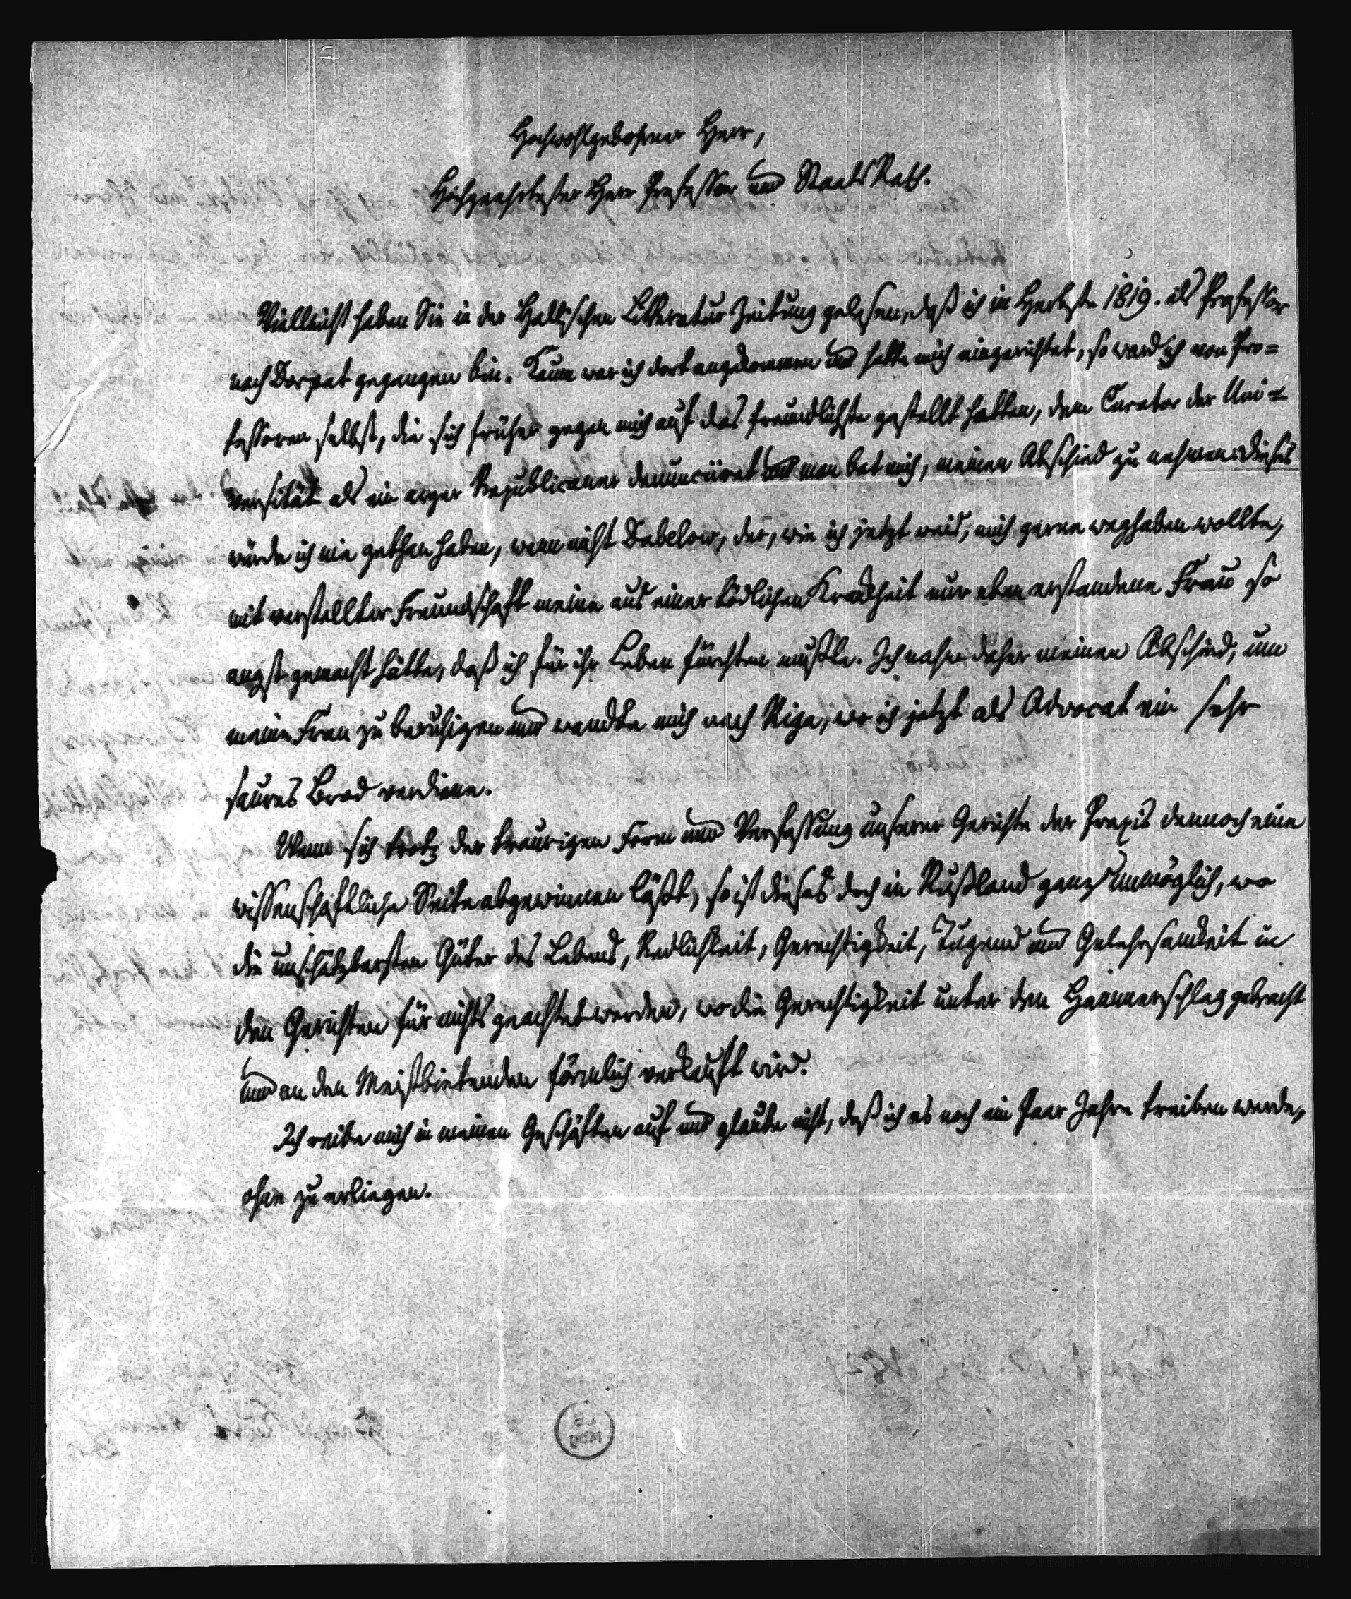 Hochwohlgebohrner Herr,
Hochgeehrtester Herr Professor und StaatsRath.
Vielleicht haben Sie in der Hallischen Litteratur Zeitung gelesen, daß ich im Herbste 1819. als Professor
nach Dorpat gegangen bin. Kaum war ich dort angekommen und hatte mich eingerichtet, so ward ich von Pro=
fessoren selbst, die sich früher gegen mich auf das freundlichste gestellt hatten, dem Curator der Uni=
versität als ein arger Republicaner denunciiret und man bat mich, meinen Abschied zu nehmen. Dieses
würde ich nie gethan haben, wenn nicht Dabelow, der, wie ich jetzt weiß, mich gerne weghaben wollte,
mit verstellter Freundschaft meine aus einer tödlichen Krankheit nur eben erstandene Frau so
angst gemacht hätte, daß ich für ihr Leben fürchten mußte. Ich nahm daher meinen Abschied, um
meine Frau zu beruhigen und wandte mich nach Riga, wo ich jetzt als Advocat ein sehr
saures Brod verdiene.
Wenn sich trotz der traurigen Form und Verfassung unserer Gerichte der Praxis dennoch eine
wissenschaftliche Seite abgewinnen läßt, so ist dieses doch in Rußland ganz unmöglich, wo
die unschätzbarsten Güter des Lebens, Redlichkeit, Gerechtigkeit, Tugend und Gelehrsamkeit in
den Gerichten für nichts geachtet werden, wo die Gerechtigkeit unter den Hammerschlag gebracht
und an den Meistbietenden förmlich verkauft wird.
Ich reibe mich in meinen Geschäften auf und glaube nicht, daß ich es noch ein Paar Jahre treiben werde,
ohne zu erliegen.